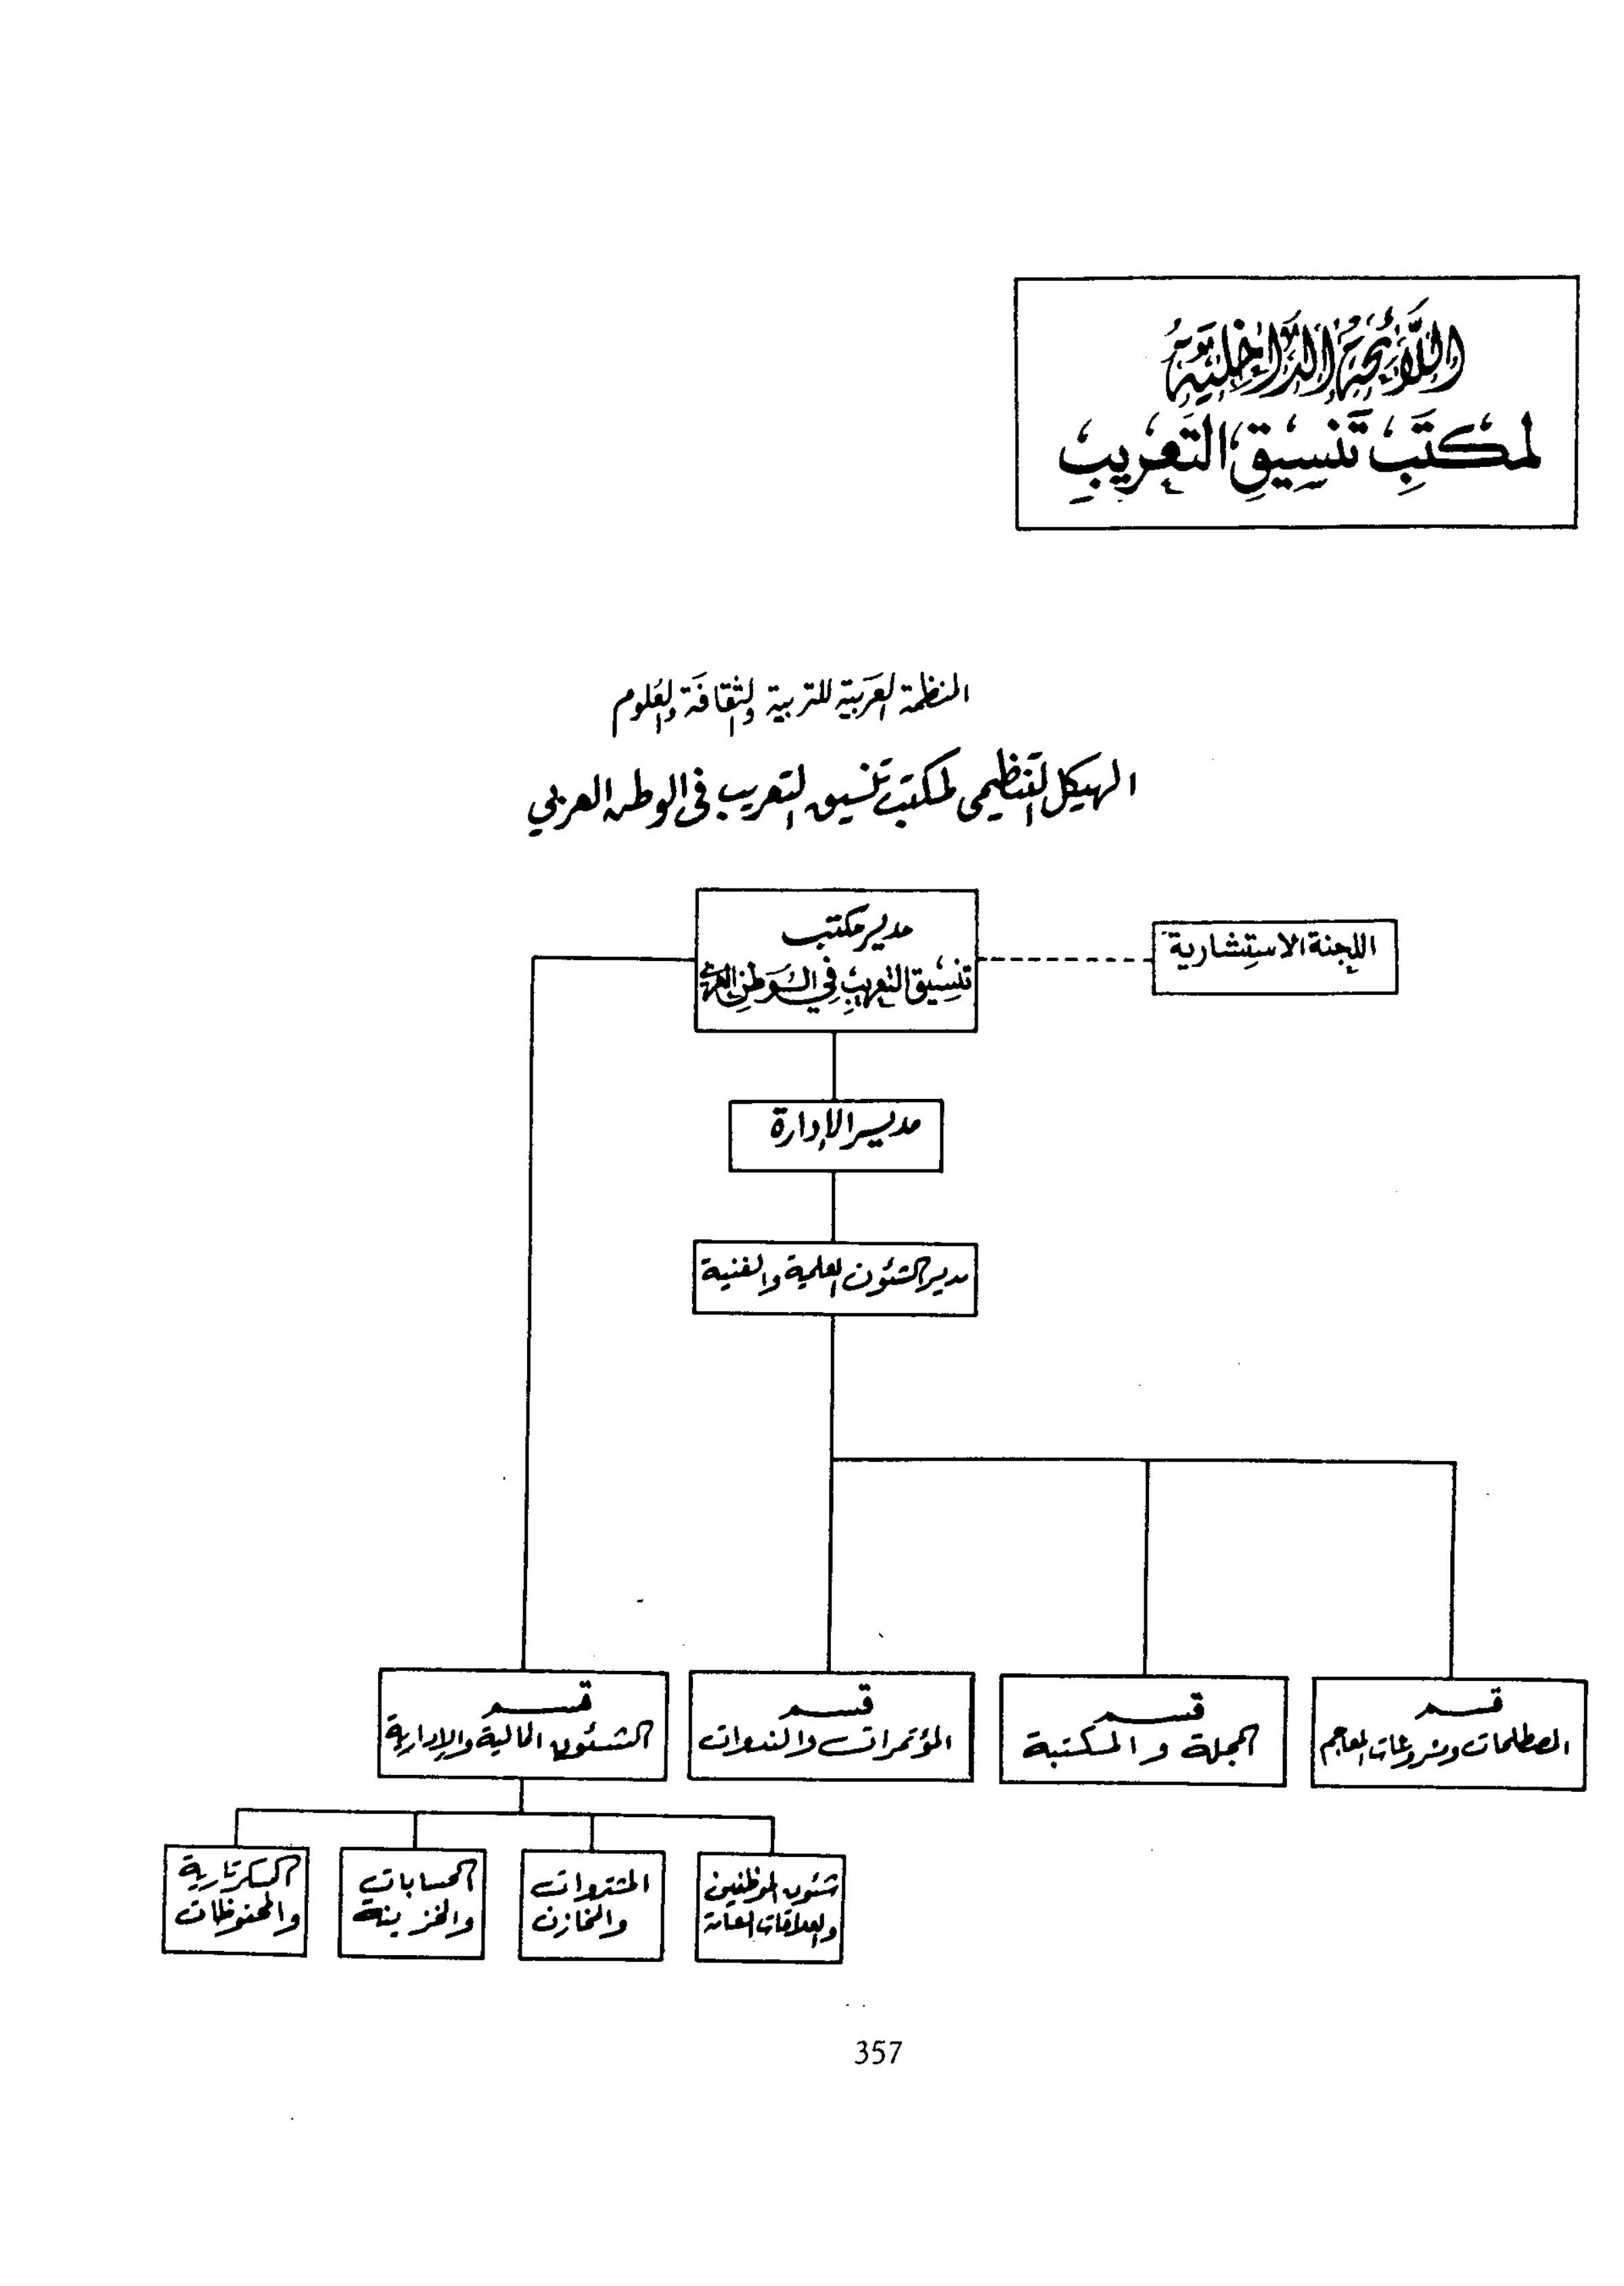 اللَّائِحَةُ الدَّاخِلِيَّةُ
لمكتَبِ تَنسِيقِ التَعريبِ
المنظمة العَرَبية للتربية والثقافَة والعُلوم
الهيكل التَنظيمى لمكتب تَنسيق التعريب فى الوطن العربي
مدير مكتب
تنسِيق التعريبِ فِي الوَطنِ العربي
اللجنة الاستِشارية
مديـر الإدارة
مدير الشئون العلمية والفنية
قسـم
المصطلحات ومشروعات المعاجم
قسـم
المجلة والمكتبة
قسـم
المؤتمرات والندوات
قسـم
الشئون المالية والإدارية
شئون الموظفين
والعلاقات العامة
المشتروات
والمخازن
الحسابات
والخزينة
السكرتارية
والمحفوظات
357